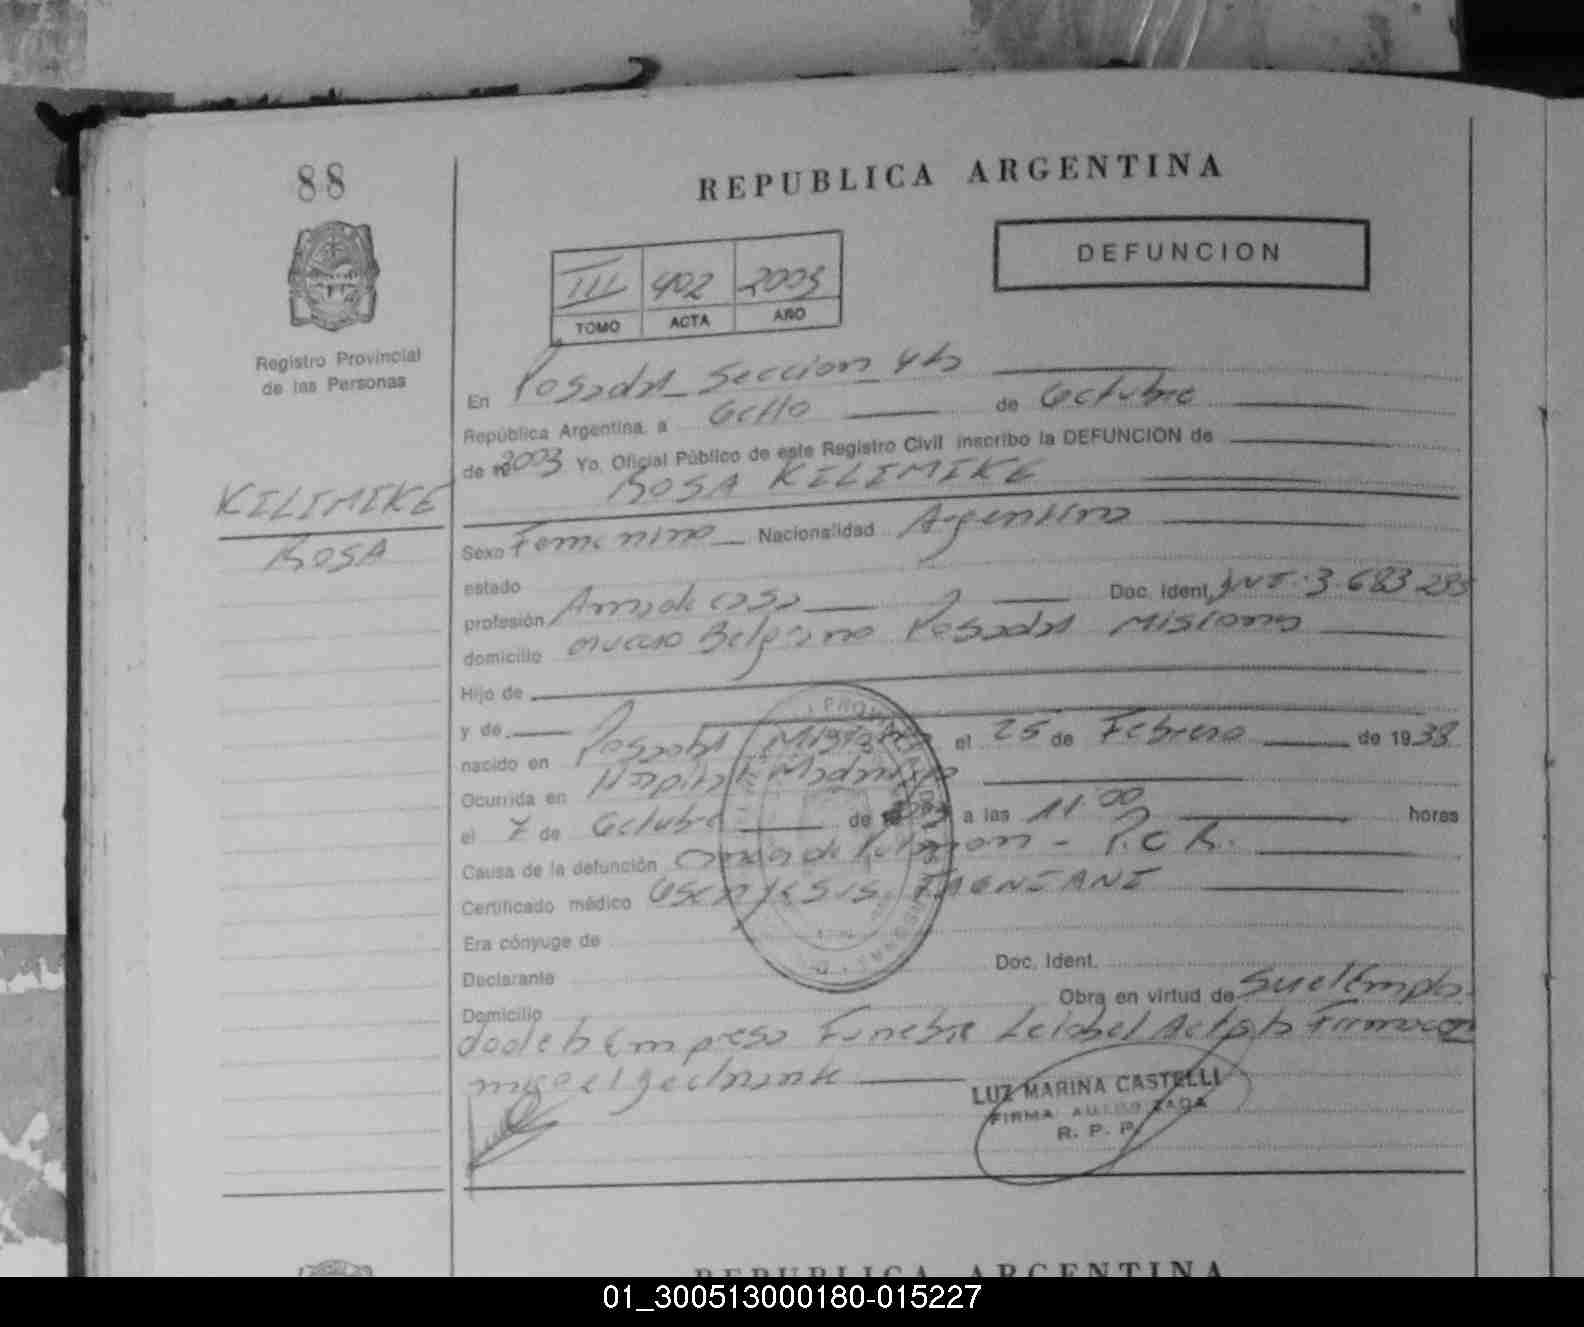 88
REPUBLICA ARGENTINA
DEFUNCION
III 402 2003
TOMO ACTA AÑO
Registro Provincial
de las Personas
En Posadas Seccion 4ta
República Argentina, a Ocho de Octubre
de 19 2003 Yo, Oficial Público de este Registro Civil inscribo la DEFUNCION de
ROSA KILIMIKE
KILIMIKE
ROSA
Sexo Femenino Nacionalidad Argentina
estado
profesión Ama de casa Doc. Ident. 3.683.235
domicilio nuevo Belgrano Posadas Misiones
Hijo de
y de
nacido en Posadas Misiones el 25 de Febrero de 1938
Ocurrida en Hospital Madariaga
el 7 de Octubre de a las 11:00 horas
Causa de la defunción de Pulmon - P.C.R.
Certificado médico
Era cónyuge de
Declarante Doc. Ident.
Domicilio Obra en virtud de Ser el Emplea
do de la Empresa Funebre Acta la Firma
miguel
LUZ MARINA CASTELLI
FIRMA AUTORIZADA
R. P. P.
REPUBLICA ARGENTINA
01_300513000180-015227